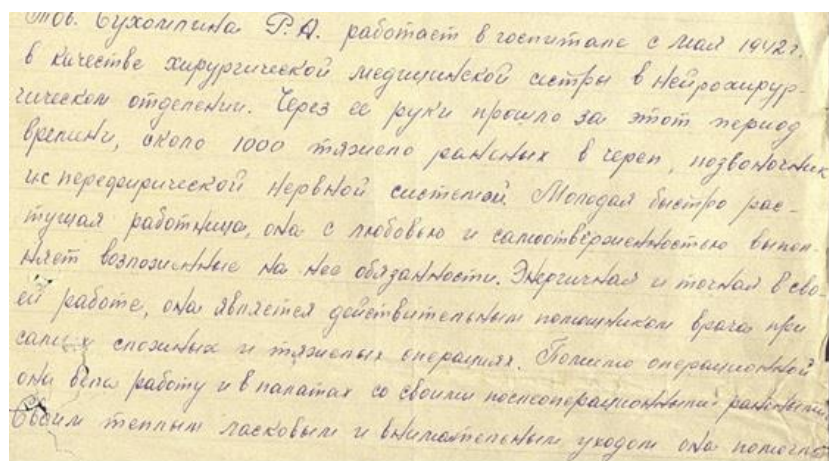 Тов. Сухомлина Р.А. работает в госпитале с мая 1942 г.
в качестве хирургической медицинской сестры в нейрохирур-
гическом отделении. Через ее руки прошло за этот период
времени, около 1000 тяжело раненых в череп, позвоночник
и с переферической нервной системой. Молодая быстро рас-
тущая работница, она с любовью и самоотверженностью выпол-
няет возложенные на нее обязанности. Энергичная и точная в сво-
ей работе, она является действительным помощником врача при
самых сложных и тяжелых операциях. Помимо операционной
она вела работу и в палатах со своими послеоперационными ранеными
Своим теплым ласковым и внимательным уходом она